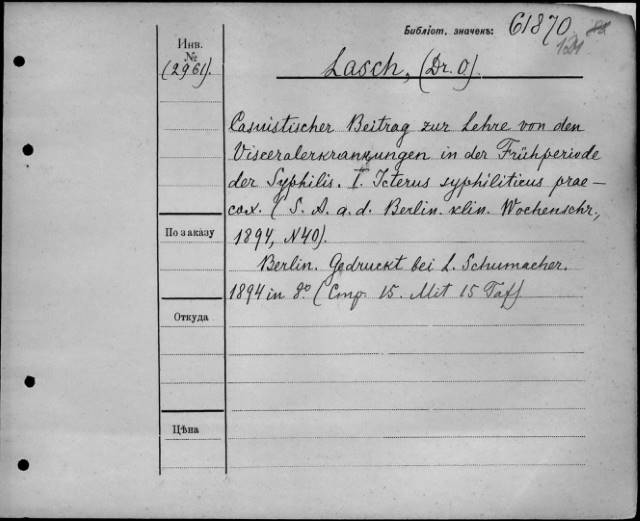 Библіот. значекъ: 61870
121
Инв.
№
(2961).
Lasch, (Dr. O).
Casuistischer Beitrag zur Lehre von den
Visceralerkrankungen in der Frühperiode
der Syphilis. I. Icterus syphiliticus prae-
cox. (S. A. a. d. Berlin. klin. Wochenschr.,
1894, N40).
Berlin. Gedruckt bei L. Schumacher.
1894 in 8º. (Стр 15. Mit 15 Taf)
По заказу
Откуда
Цѣна